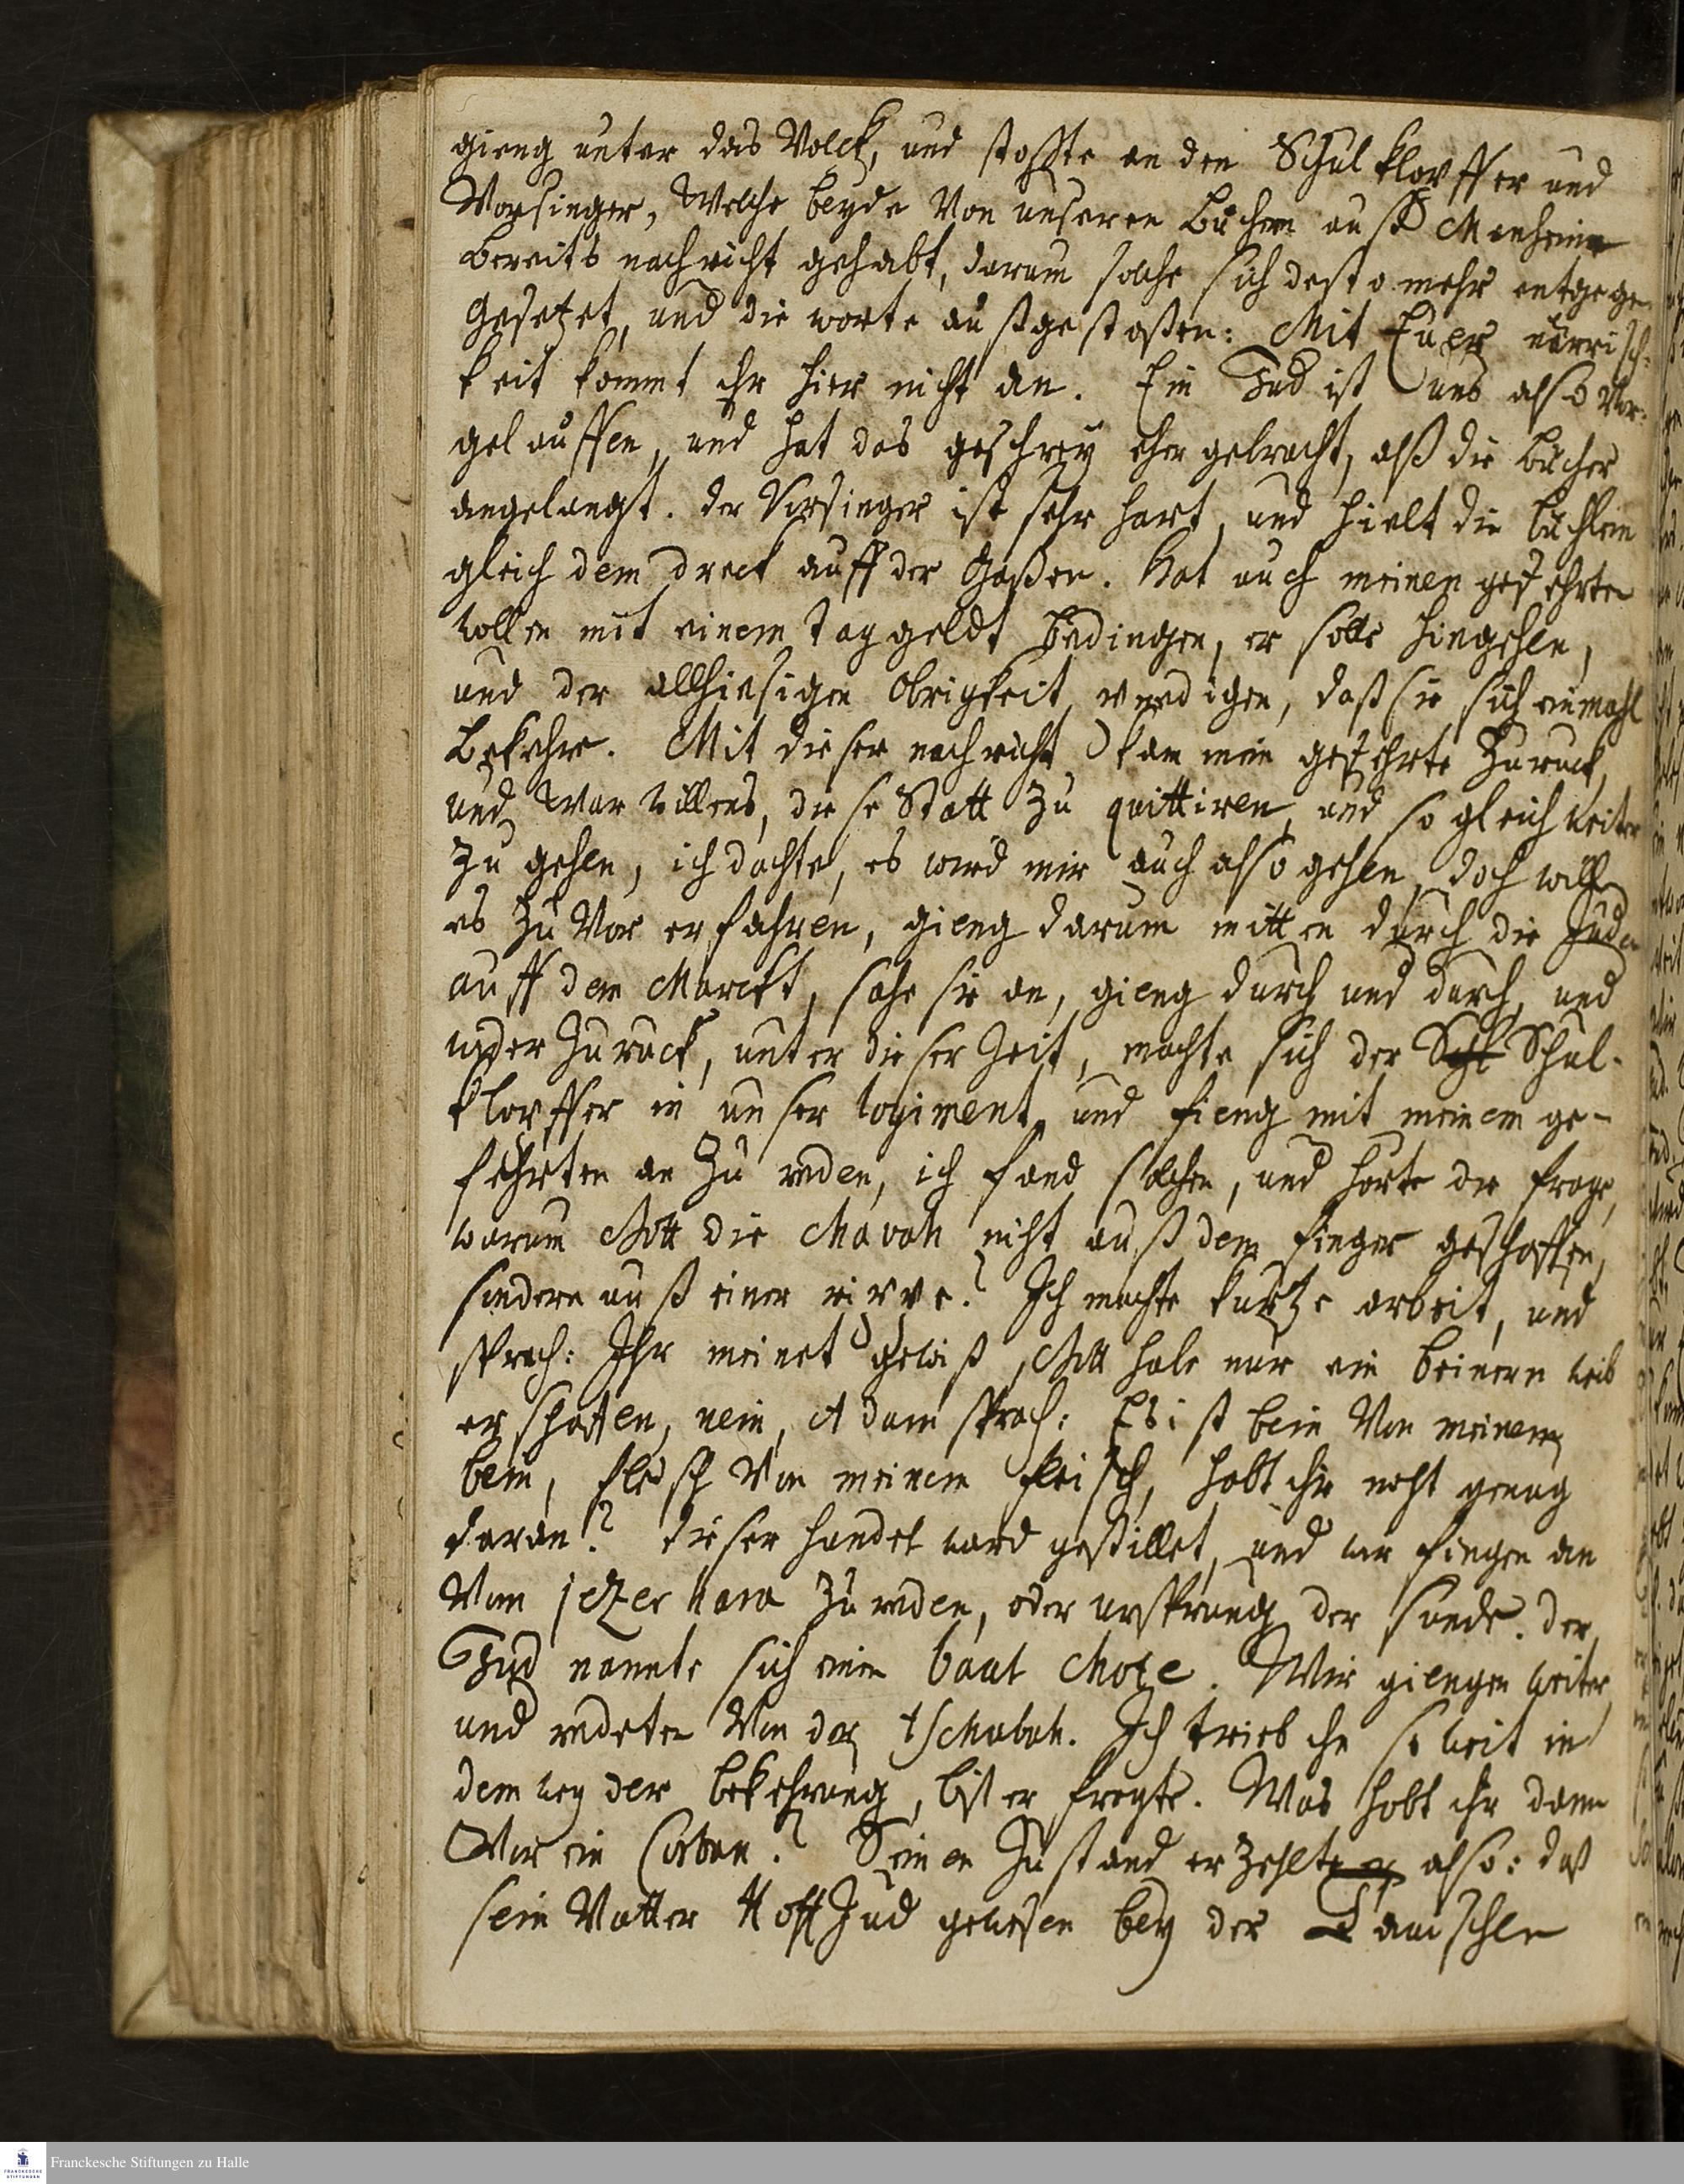 gieng unter das Volck, und stoßte an den Schulklopffer und
Vorsinger, Welche beyde Von unseren Büchern auß Manheim
bereits nachricht gehabt, darum solche sich desto mehr entgege
gesetzet, und die worte außgestoßen: Mit Euer närrisch-
keit kommt ihr hier nicht an. Ein Jud ist uns also Vor-
geloffen, und hat das geschrey eher gebracht, alß die Bücher
angelangt. der Vorsinger ist sehr hart, und hielt die büchlein
gleich dem dreck auff der Gaßen. Hat auch meinen gefehrten
wollen mit einem taggeldt bedingen, er solte hingehen,
und der allhiesigen Obrigkeit predigen, daß sie sich einmahl
bekehre. Mit dieser nachricht kam mein gefehrte Zuruck,
und War willens, diese Statt zu quittiren, und so gleich weiter
zu gehen, ich dachte, es wird mir auch also gehen, doch will
es zu Vor erfahren, gieng darum mitten durch die Juden
auff dem Marckt, sahe sie an, gieng durch und durch, und
wider Zuruck, unter dieser Zeit, machte sich der Schl Schul-
klopffer in unser logiment, und fieng mit meinem ge-
fehrten an Zu reden, ich fand solchen, und hörte die frage,
warum Gott die Chavah nicht auß dem finger geschaffen,
sondern auß einer rippe? Ich machte kurtze arbeit, und
sprach: Ihr meinet gewiß, Gott habe nur ein beinern weib
erschaffen, nein, Adam sprach: Es ist bein Von meinem
bein, fleisch Von meinem fleisch, habt ihr nicht genug
daran? dieser handel ward gestillet, und wir fingen an
Vom jezer hara Zu reden, oder ursprung der sunde. der
Jud nannte sich einen baal Choze. Wir giengen weiter,
und redeten Von der tschubah. Ich trieb ihn so weit in
dem weg der bekehrung, biß er fragte. Was habt ihr dann
Vor ein Corban? Seinen Zustand erzehlte er also: daß
sein Vatter HoffJud gewesen bey der